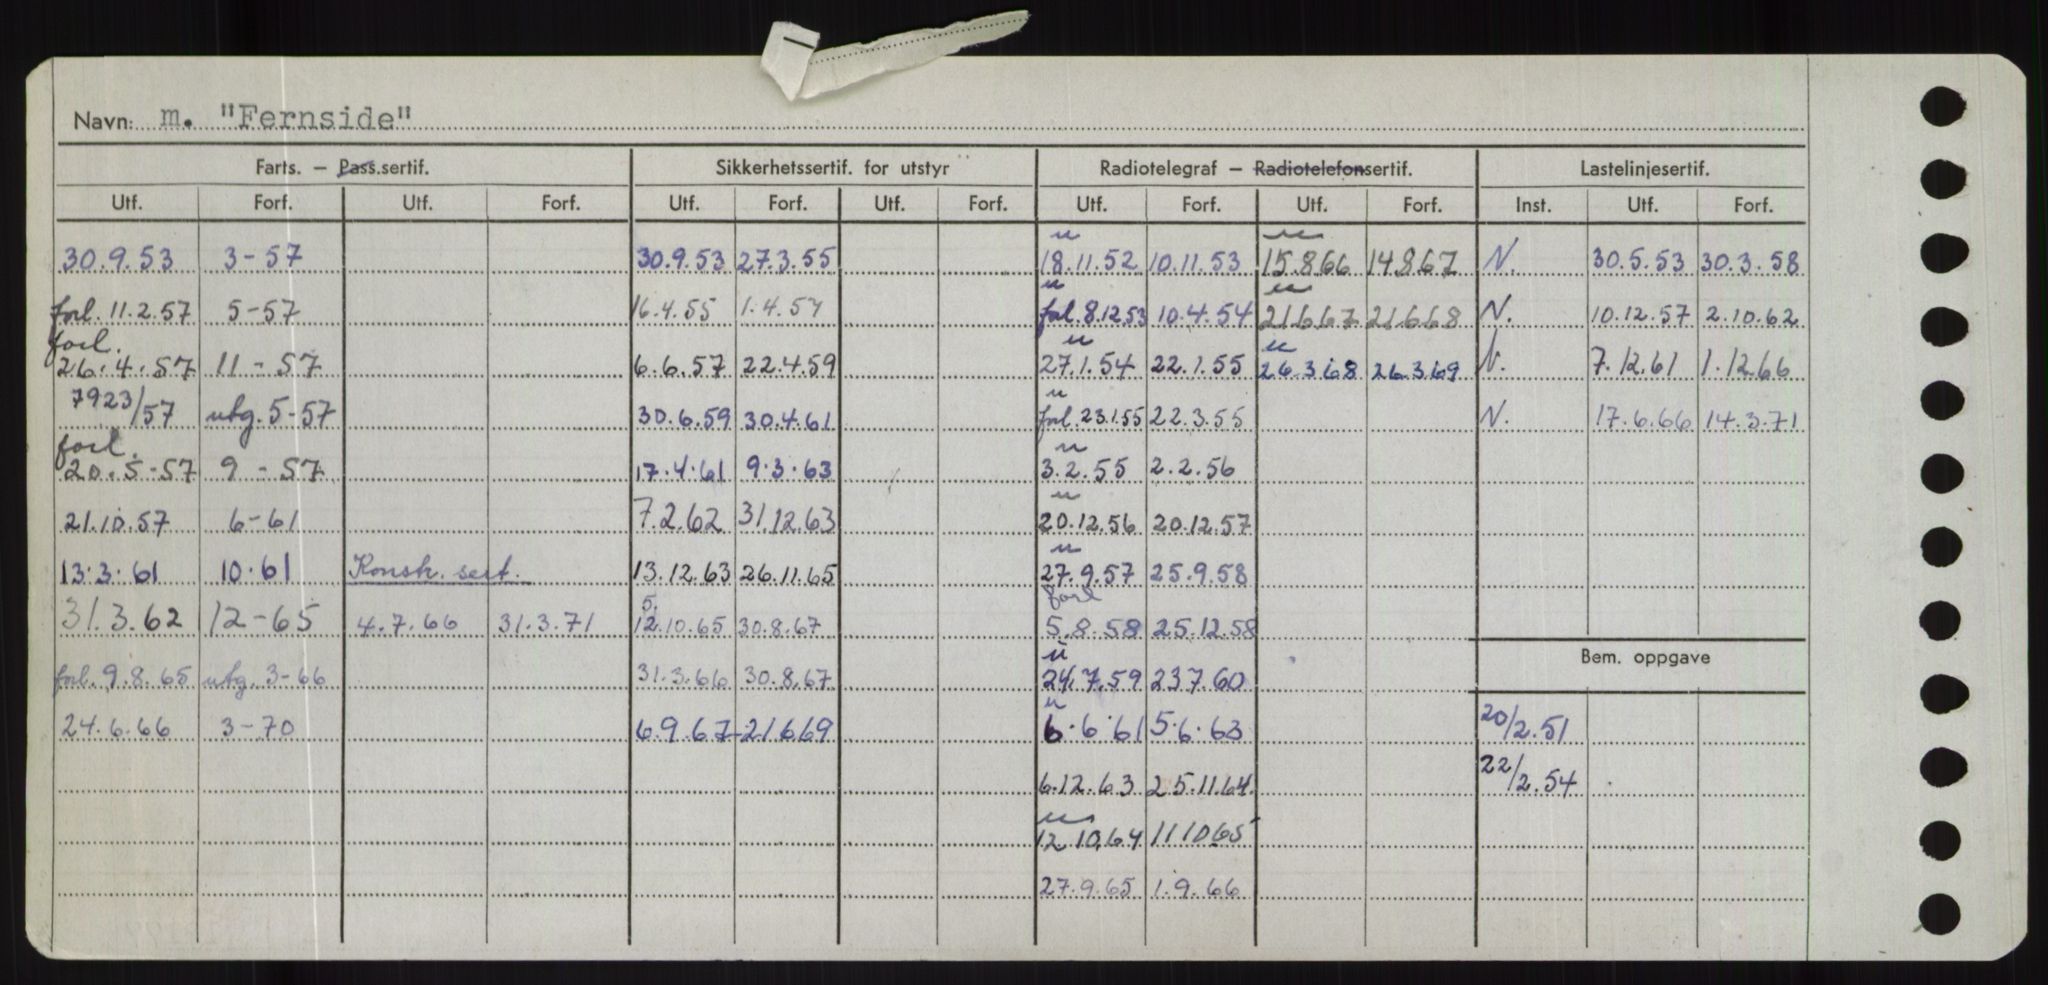 Navn: m. "Fernside"
Farts. — Pass.sertif. Sikkerhetssertif. for utstyr Radiotelegraf — Radiotelefonsertif. Lastelinjesertif.
Utf. Forf. Utf. Forf. Utf. Forf. Utf. Forf. Utf. Forf. Utf. Forf. Inst. Utf. Forf.
u u
30.9.53 3-57 30.9.53 27.3.55 18.11.52 10.11.53 15.8.66 14.8.67 N. 30.5.53 30.3.58
u u
forl. 11.2.57 5-57 16.4.55 1.4.57 forl. 8.12.53 10.4.54 21.6.67 21.6.68 N. 10.12.57 2.10.62
forl. u u
26.4.57 11-57 6.6.57 22.4.59 27.1.54 22.1.55 26.3.68 26.3.69 N. 7.12.61 1.12.66
u
7923/57 utg. 5-57 30.6.59 30.4.61 forl. 23.1.55 22.3.55 N. 17.6.66 14.3.71
forl. u
20.5-57 9-57 17.4.61 9.3.63 3.2.55 2.2.56
u
21.10.57 6-61 7.2.62 31.12.63 20.12.56 20.12.57
u
13.3.61 10.61 Konstr. sert. 13.12.63 26.11.65 27.9.57 25.9.58
5. forl
31.3.62 12-65 4.7.66 31.3.71 12.10.65 30.8.67 5.8.58 25.12.58
Bem. oppgave
u
forl. 9.8.65 utg. 3-66 31.3.66 30.8.67 24.7.59 23.7.60
u
24.6.66 3-70 6.9.67 21.6.69 6.6.61 5.6.63 20/2.51
6.12.63 25.11.64. 22/2.54
u
12.10.64 11.10.65
27.9.65 1.9.66